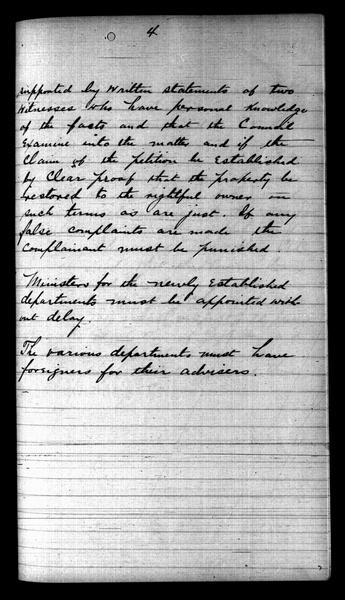 4
supported by written statements of two
witnesses who have personal knowledge
of the facts and that the Council
Examine into the matter and if the
Claim of the petition be Established
by Clear proof that the property be
restored to the rightful owner on
such terms as are just. If any
false complaints are made the
complainant must be punished
Ministers for the newly Established
departments must be appointed with-
out delay.
The various departments must have
foreigners for their advisers.